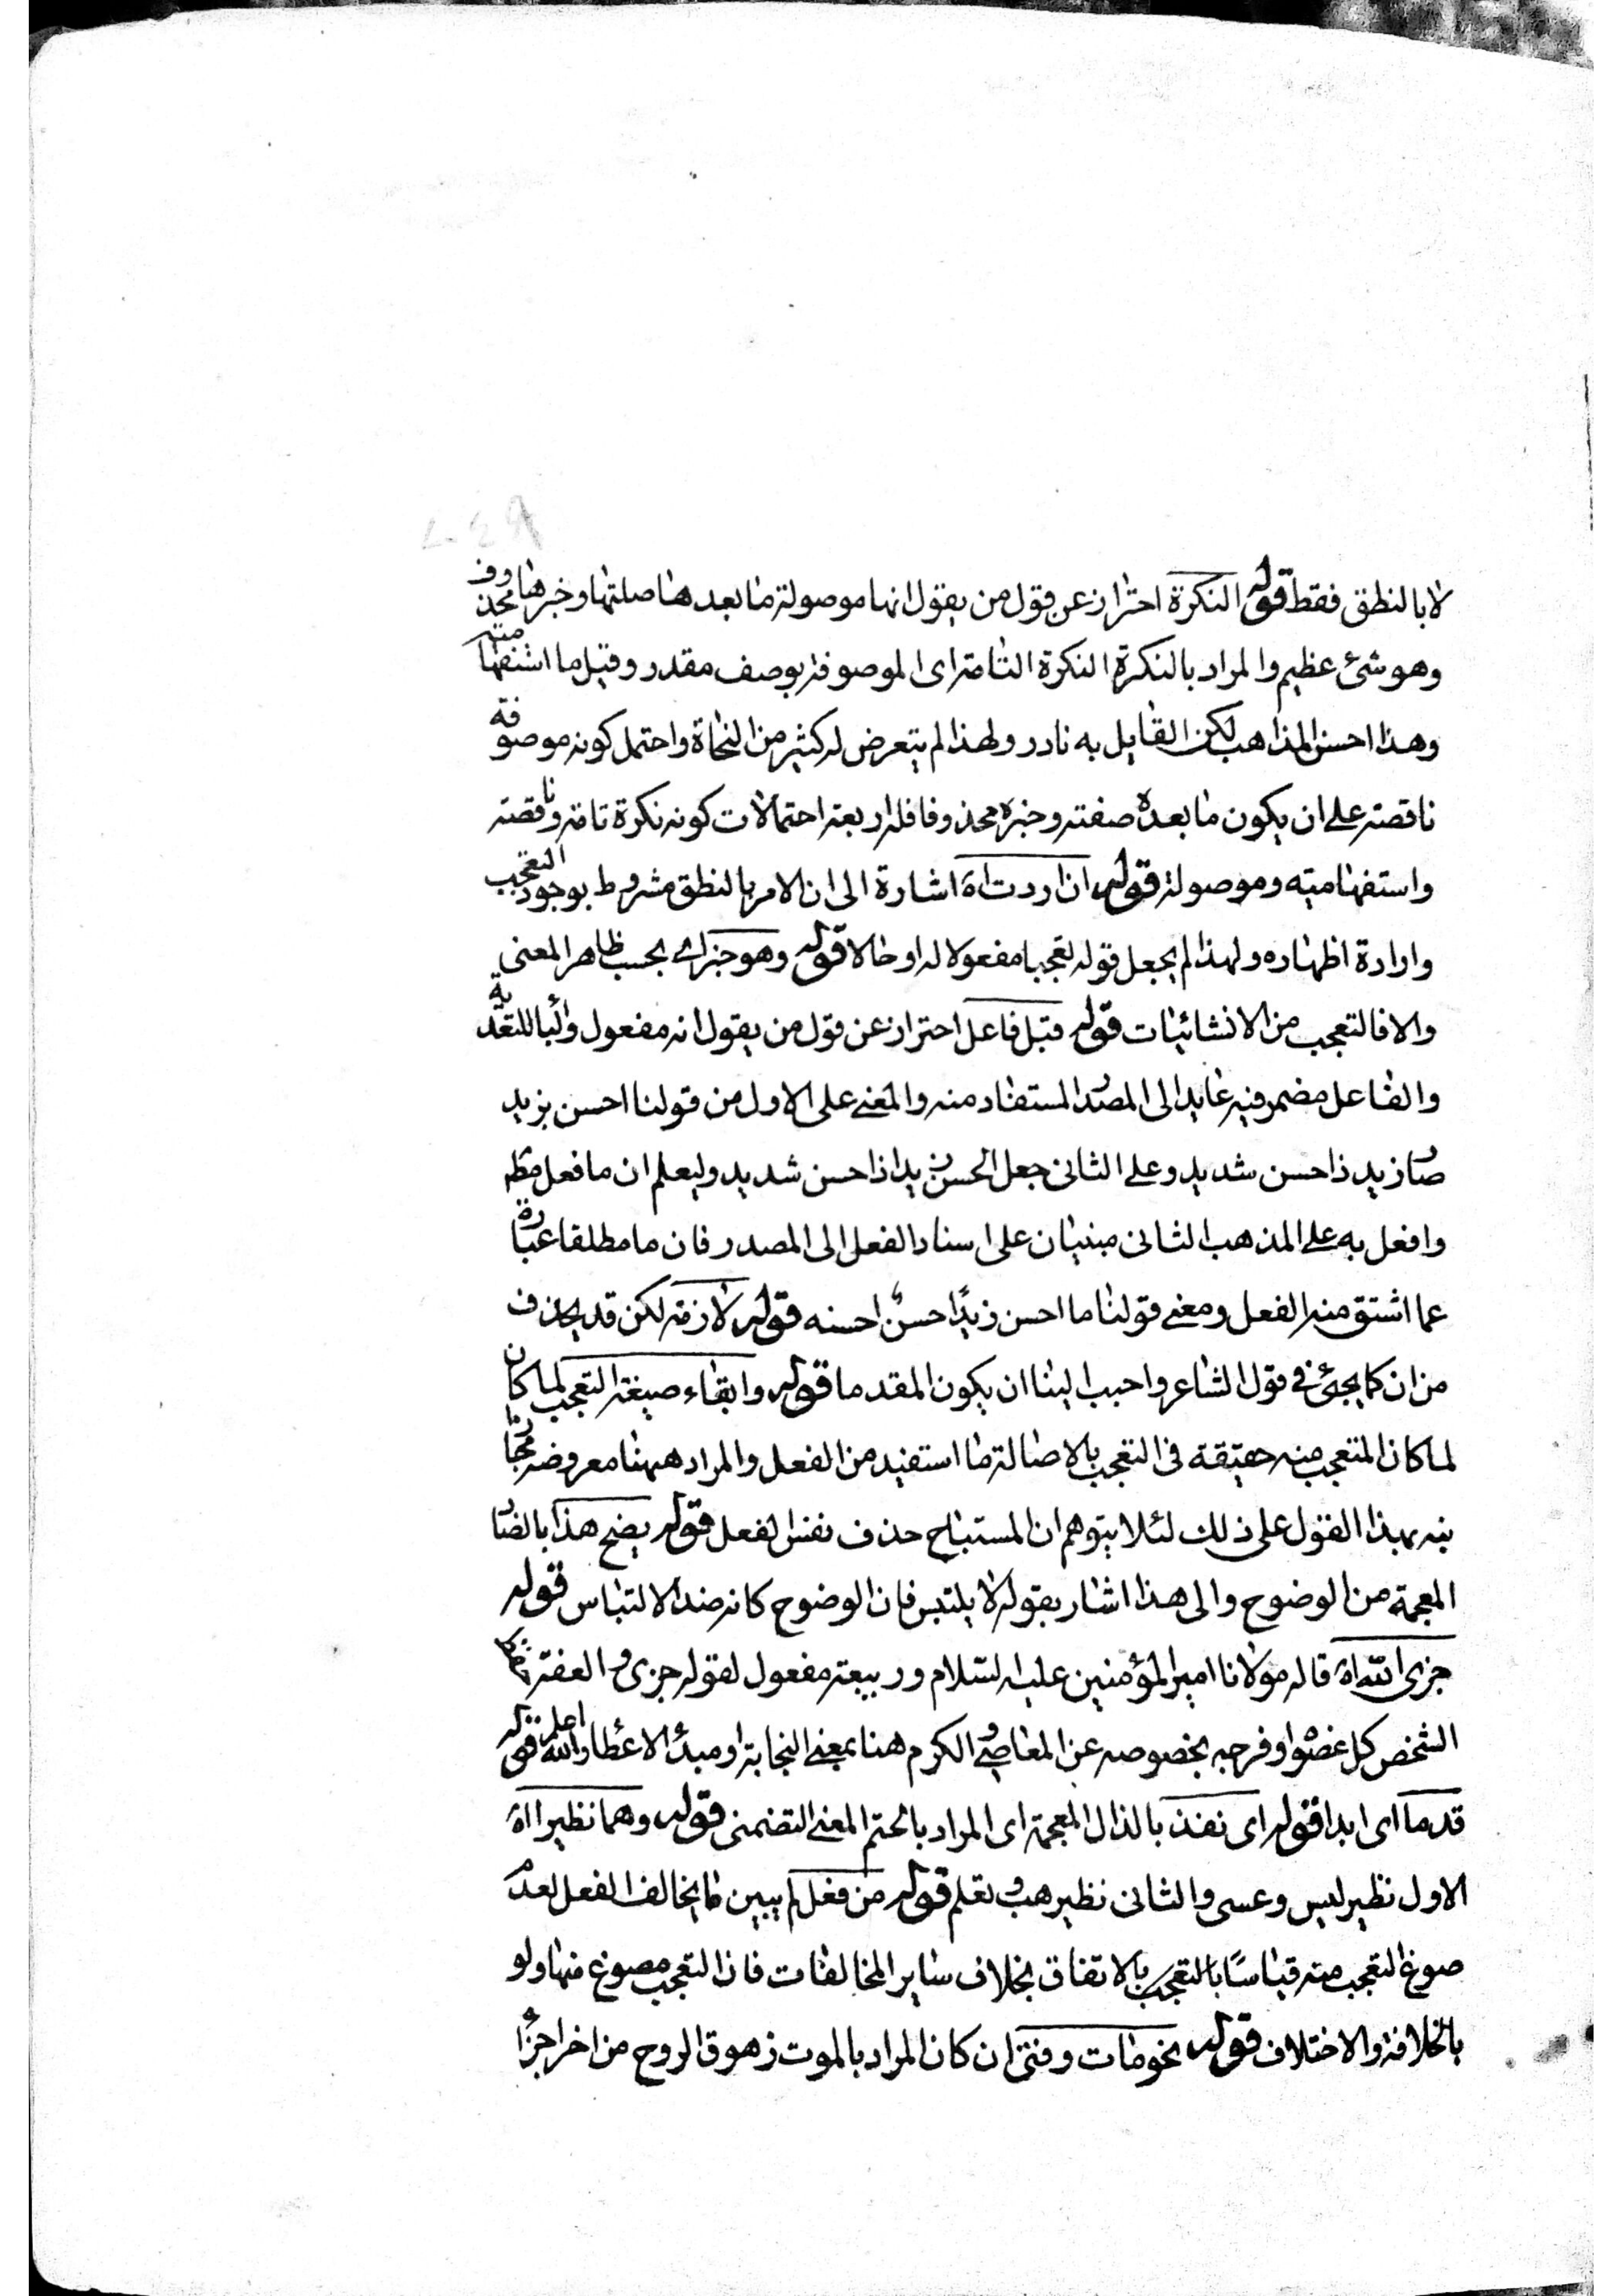 لا بالنطق فقط قوله النكرة احتراز عن قول من يقول انها موصولة ما بعدها صلتها وخبرها محذوف
وهو شئ عظيم والمراد بالنكرة النكرة التامة اى الموصوفة بوصف مقدر وقيل ما استفهامية
وهذا احسن المذاهب لكن القايل به نادر ولهذا لم يتعرض له كثير من النحاة واحتمل كونه موصوفة
ناقصة على ان يكون ما بعده صفته وخبره محذوفا فله اربعة احتمالات كونه نكرة تامة وناقصة
واستفهاميته وموصولة قوله ان اردت اه اشارة الى ان الامر بالنطق مشروط بوجود التعجب
وارادة اظهاره ولهذا لم يجعل قوله تعجبا مفعولا له او حالا قوله وهو خبر اى بحسب ظاهر المعنى
والا فالتعجب من الانشائيات قوله قبل فاعل احتراز عن قول من يقول انه مفعول والبا للتعدية
والفاعل مضمر فيه عايد الى المصدر المستفاد منه والمعنى على الاول من قولنا احسن بزيد
صار زيد ذا حسن شديد وعلى الثانى جعل الحسن زيدا ذا حسن شديد وليعلم ان ما فعل مطه
وافعل به على المذهب الثانى مبنيان على اسناد الفعل الى المصدر فان ما مطلقا عبارة
عما اشتق منه الفعل ومعنى قولنا ما احسن زيدًا حسنٌ احسنه قوله لازمة لكن قد يحذف
من ان كما يجئ فى قول الشاعر واحبب الينا ان يكون المقدما قوله وابقاء صيغة التعجب لما كان
لما كان المتعجب منه حقيقة فى التعجب بالاصالة ما استفيد من الفعل والمراد ههنا معروضه مجازا
نبه بهذا القول على ذلك لئلا يتوهم ان المستباح حذف نفس الفعل قوله يضح هذا بالضاد
المعجمة من الوضوح والى هذا اشار بقوله لا يلتبس فان الوضوح كانه ضد الالتباس قوله
جزى الله اه قاله مولانا امير المؤمنين عليه السلام وربيعة مفعول لقوله جزى والعفة
الشخص كل عضو او فرجه بخصوصه عن المعاصى والكرم هنا بمعنى النجابة او مبدأ الاعطا والله اعلم قوله
قدما اى ابدا قوله اى نفذ بالذال المعجمة اى المراد بالحتم المعنى التضمنى قوله وهما نظيرا اه
الاول نظير ليس وعسى والثانى نظير هب وتعلم قوله من فعل لم يبين ما يخالف الفعل لعدم
صوغ التعجب منه قياسًا بالتعجب بالاتفاق بخلاف ساير المخالفات فان التعجب مصوغ منها ولو
بالخلافة والاختلاف قوله نحو مات وفنى ان كان المراد بالموت زهوق الروح من اخر اجزا